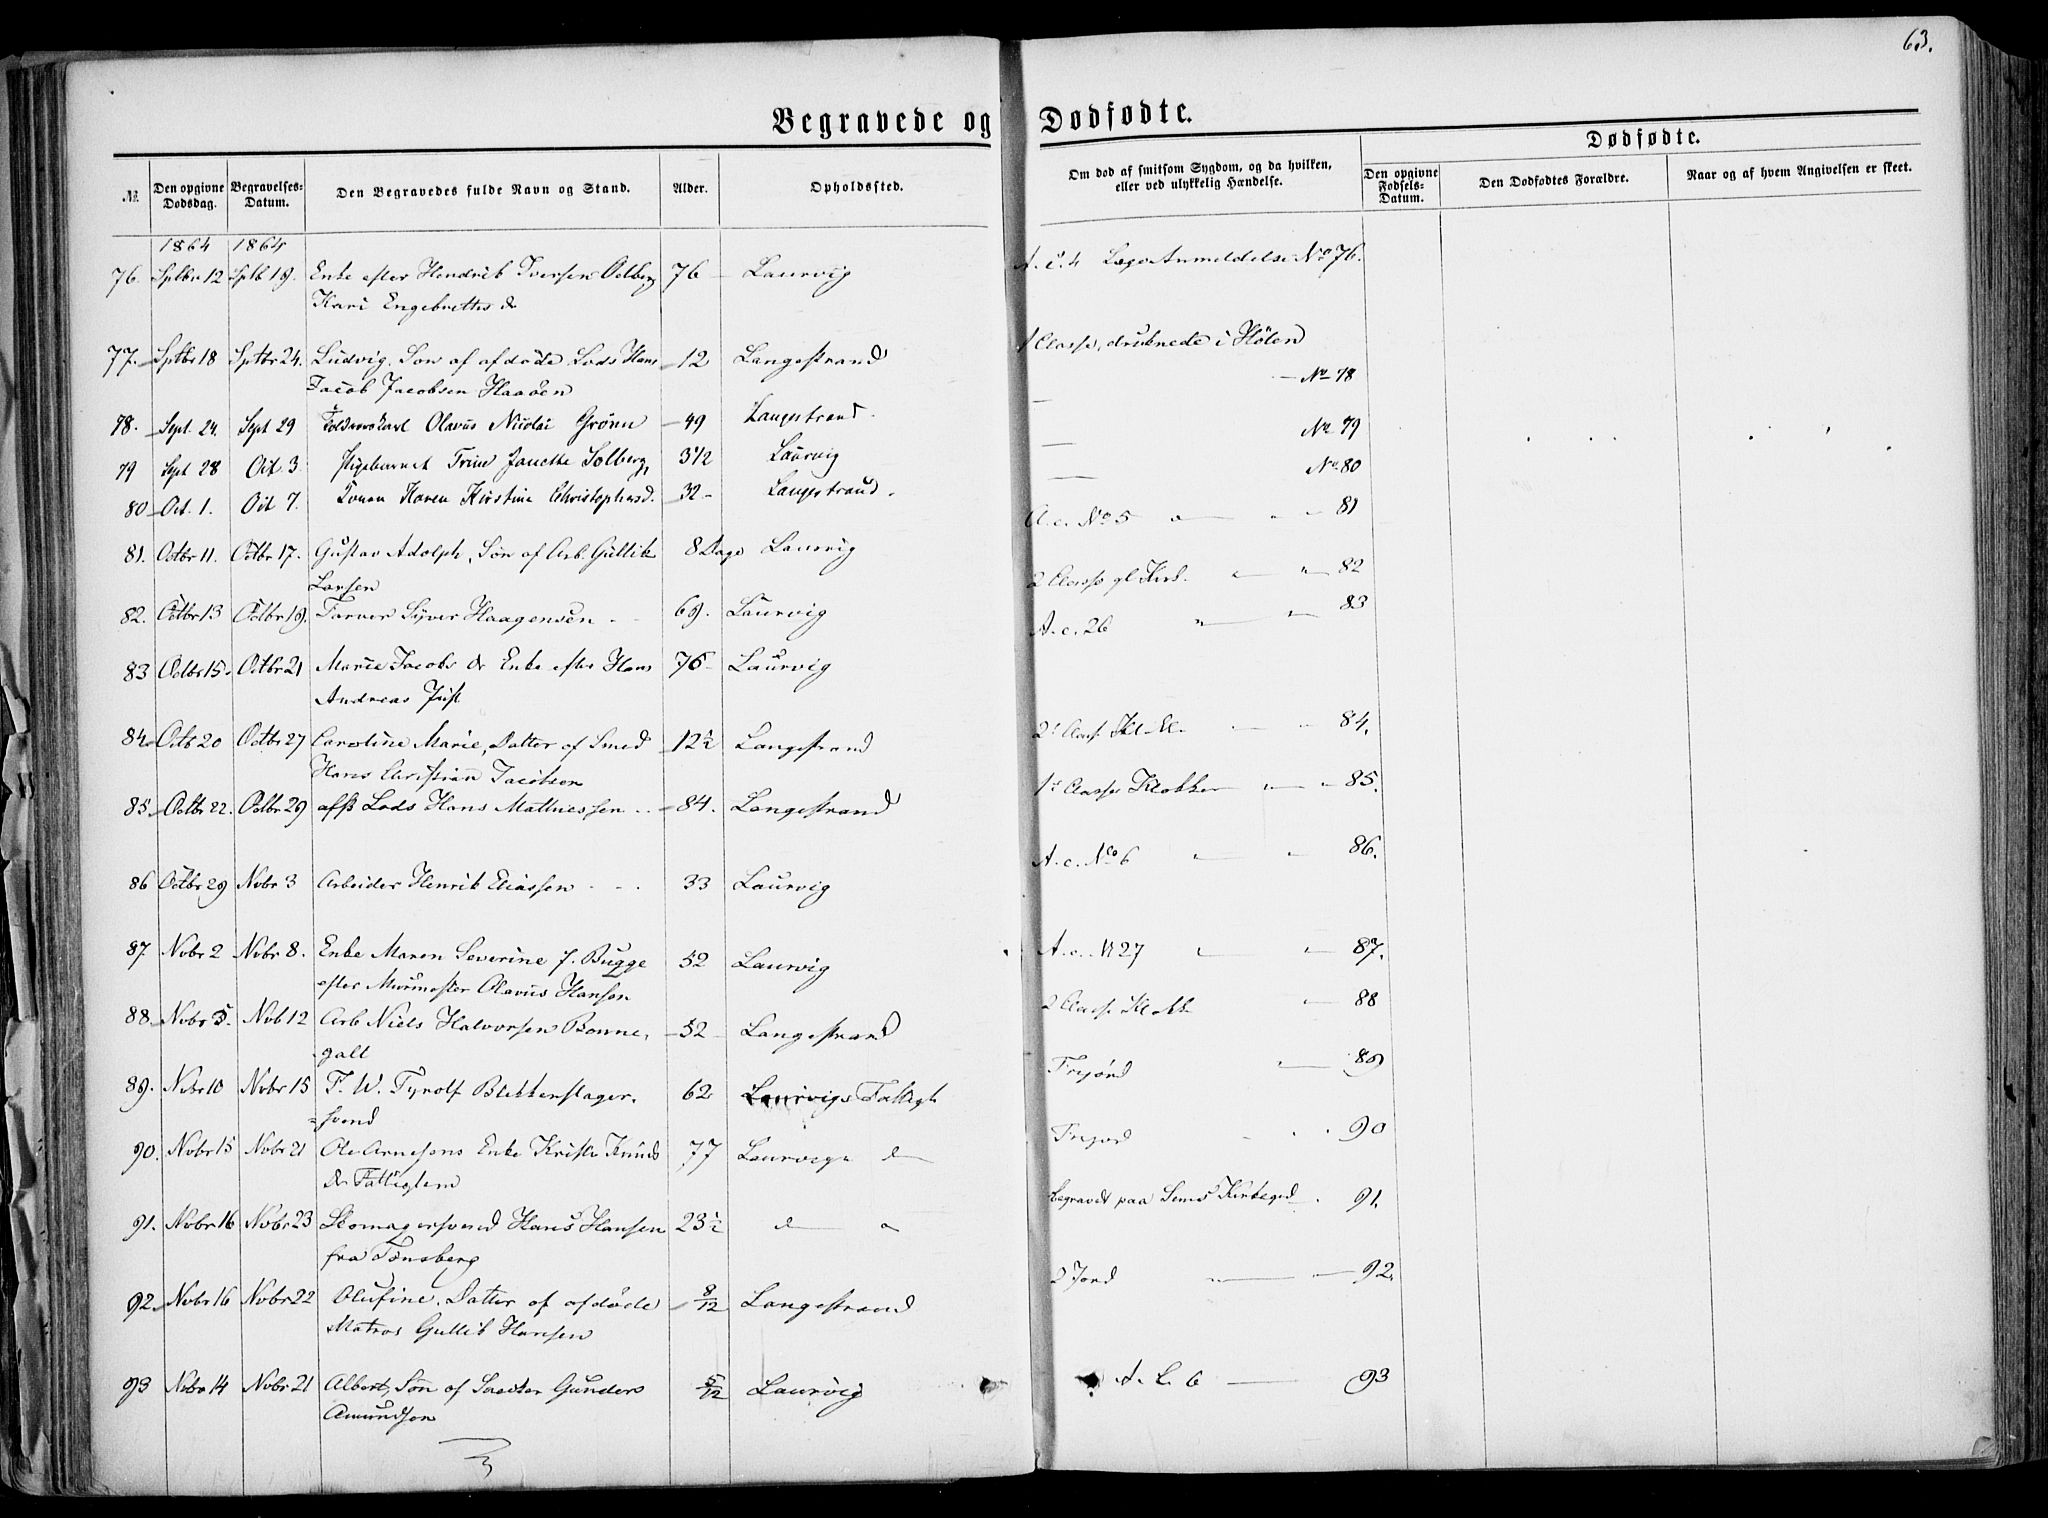 63.
Begravede og Dødfødte.
Dødfødte.
№
Den opgivne Dødsdag.
Begravelses-Datum.
Den Begravedes fulde Navn og Stand.
Alder.
Opholdssted.
Om død af smitsom Sygdom, og da hvilken, eller ved ulykkelig Hændelse.
Den opgivne Fødsels-Datum.
Den Dødfødtes Forældre.
Naar og af hvem Angivelsen er skeet.
1864 1864
76. Sptbr 12 Sptb 19. Enke efter Hendrik Iversen 76 Laurvig Læge Anmeldelse No 76.
Kari Engebretts dr
77. Sptbr 18 Sptbr 24. Ludvig. Søn af afdøde Lods Hans 12 Langestrand 1 Classe, druknede i
Jacob Jacobsen Haaøen No 78
78. Sept. 24. Sept 29 Olavus Nicolai Grønn 49 Langestrand No 79
79 Sept 28 Oct. 3 Pigebarnet Trine Janette Solberg, 3 1/2 Laurvig No 80
80 Oct. 1. Oct 7. Konen Karen Kirstine Christophersd. 32 Langestrand. A.c. No 5 81
81. Octbr 11. Octbr 17. Gustav Adolph, Søn af Arb. Gullik 8 Dage Laurvig
Larsen 2 Classe gl Kirk. 82
82. Octbr 13 Octbr 19. Farver Syver Haagensen 69. Laurvig A.c. 26 83
83 Octbr 15. Octbr 21 Marie Jacobs dr Enke efter Hans 76 Laurvig
Andreas Just
84 Octb 20 Octbr 27 Caroline Marie, Datter af Smed 12 1/2 Langestrand 2 Class 84.
Hans Christian Jacobsen
85 Octbr 22. Octbr 29 Lods Hans Mathiessen 84. Langestrand 1 Classe Klokker 85.
86 Octbr 29 Novbr 3 Arbeider Henrik Eliassen 33 Laurvig A.c. No 6 86.
87 Nvbr 2 Nvbr 8. Enke Maren Severine f. Bugge 52 Laurvig A.c. N 27 87.
efter Murmester Olavus Hansen
88 Nvbr 5. Nvb 12 Arb Niels Halvorsen Bonne, 52 Langestrand 2 Classe Klokk 88
galt
89. Nvbr 10 Nvbr 15 F. W. Tyrolf Blikkenslager- 62 Laurvigs Fattigh Frijord 89
svend
90. Nvbr 15 Nvbr 21 Ole Arnesens Enke Kristi Knuds 77 Laurvigs d Frijord 90
Dr Fattiglem
91. Nvbr 16 Nvbr 23 Skomagersvend Hans Hansen 23 1/2 d Begravet paa Sems Kirkegrd. 91.
fra Tønsberg
92. Nvbr 16 Nvbr 22 Olufine. Datter af afdøde 8/12 Langestrand 2 Jord 92.
Matros Gullik Hansen
93 Nvbr 14 Nvbr 21 Albert, Søn af Snecker Gunders 5/12 Laurvig A. L. 6 93
Amundsen